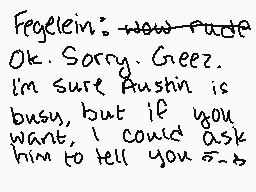 Fegelein: wow rude
Ok. Sorry. Geez.
I'm sure Austin is
busy, but if you
want, I could ask
him to tell you